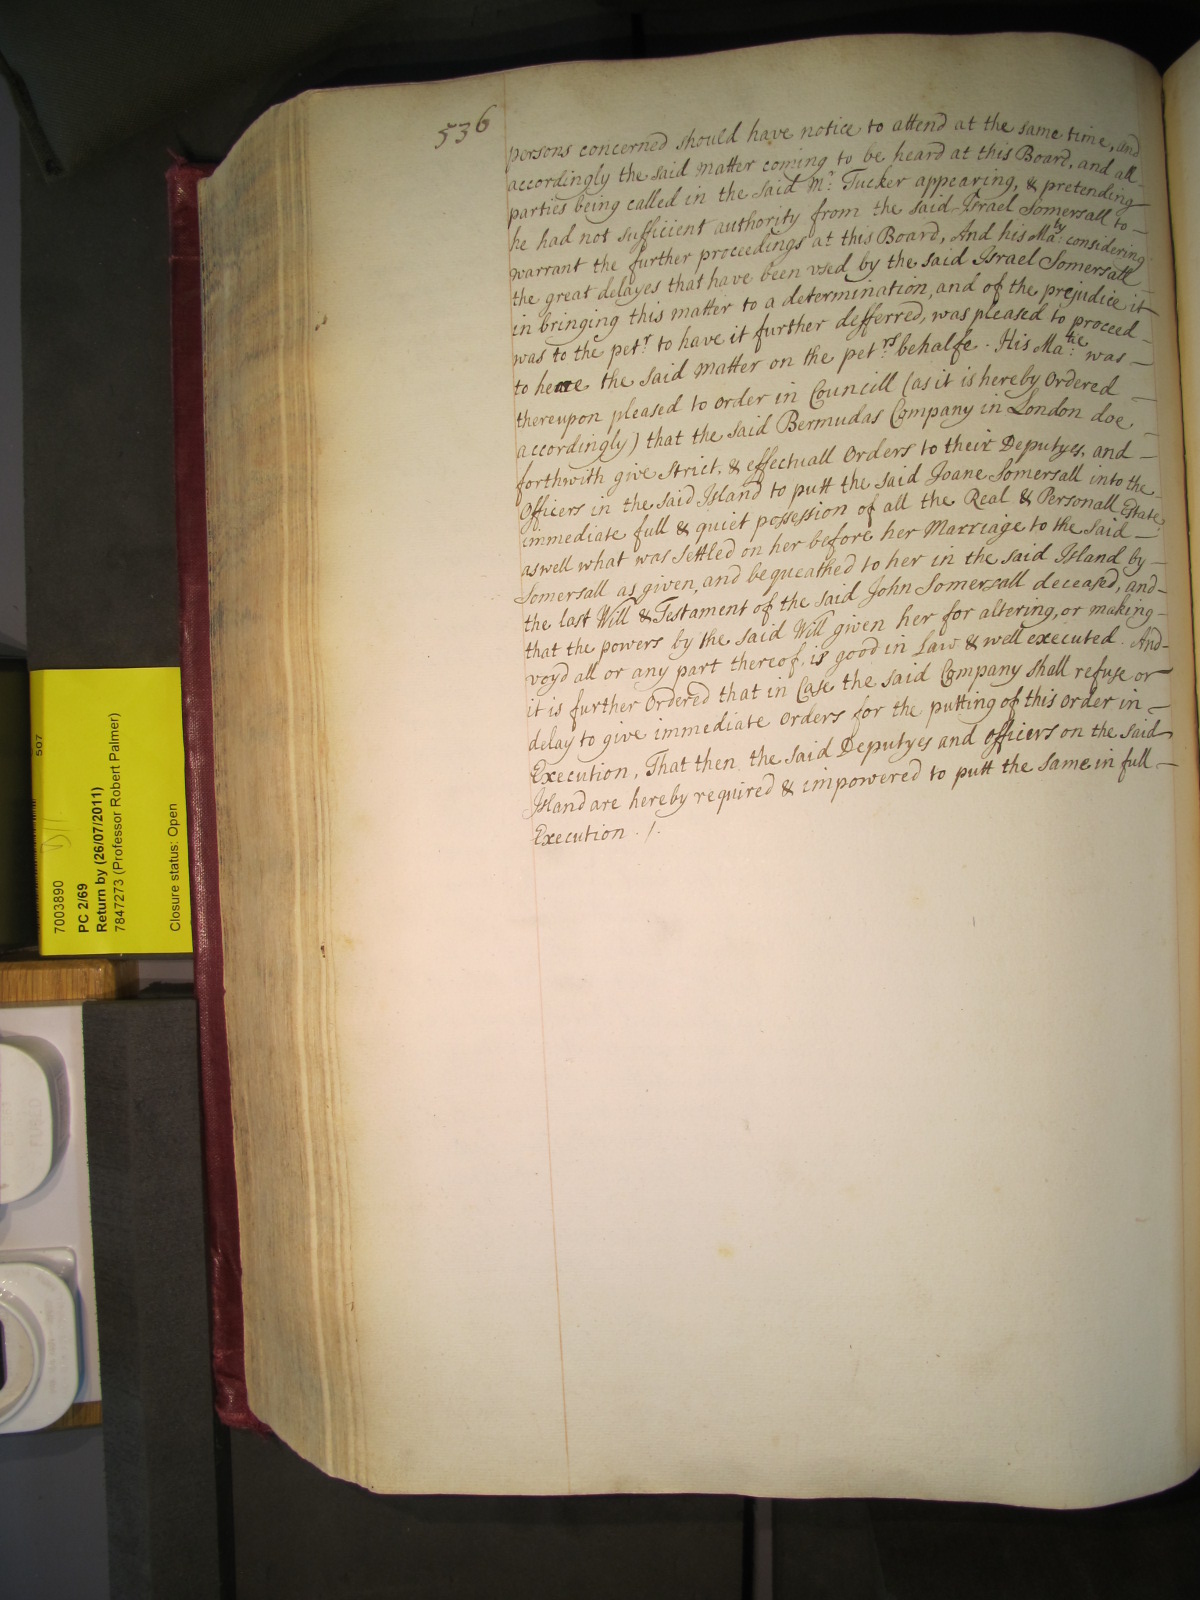 536
persons concerned should have notice to attend at the same time, and
accordingly the said Matter coming to be heard at this Board, and all
parties being called in the said Mr: Tucker appearing, & pretending
he had not sufficient authority from the said Israel Somersall to
warrant the further proceedings at this Board, And his Ma:ty considering
the great delayes that have been vsed by the said Israel Somersall
in bringing this matter to a determination, and of the prejudice it
was to the pet:r to have it further defferred, was pleased to proceed
to heare the said Matter on the pet:rs behalfe. His Ma:tie was
thereupon pleased to order in Councill (as it is hereby Ordered
accordingly) that the said Bermudas Company in London doe
forthwith give strict, & effectuall Orders to their Deputyes, and
Officers in the said Island to putt the said Joane Somersall into the
immediate full & quiet possession of all the Real & Personall Estate
aswell what was settled on her before her Marriage to the said
Somersall as given, and bequeathed to her in the said Island by
the last Will & Testament of the said John Somersall deceased, and
that the powers by the said Will given her for altering, or making
voyd all or any part thereof, is good in Law & well executed. And
it is further Ordered that in Case the said Company shall refuse or
delay to give immediate Orders for the putting of this Order in
Execution, That then the said Deputyes and Officers on the said
Island are hereby required & impowered to putt the same in full
Execution ./.
507
7003890
PC 2/69
Return by (26/07/2011)
7847273 (Professor Robert Palmer)
Closure status: Open